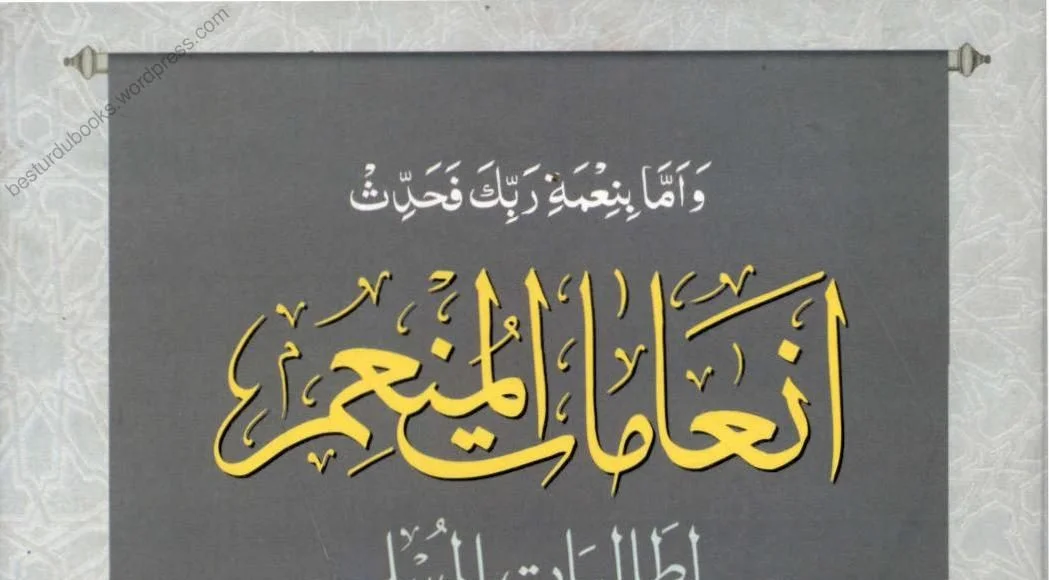 besturdubooks.wordpress.com
وَاَمَّا بِنِعْمَةِ رَبِّكَ فَحَدِّثْ
انعامات المنعم